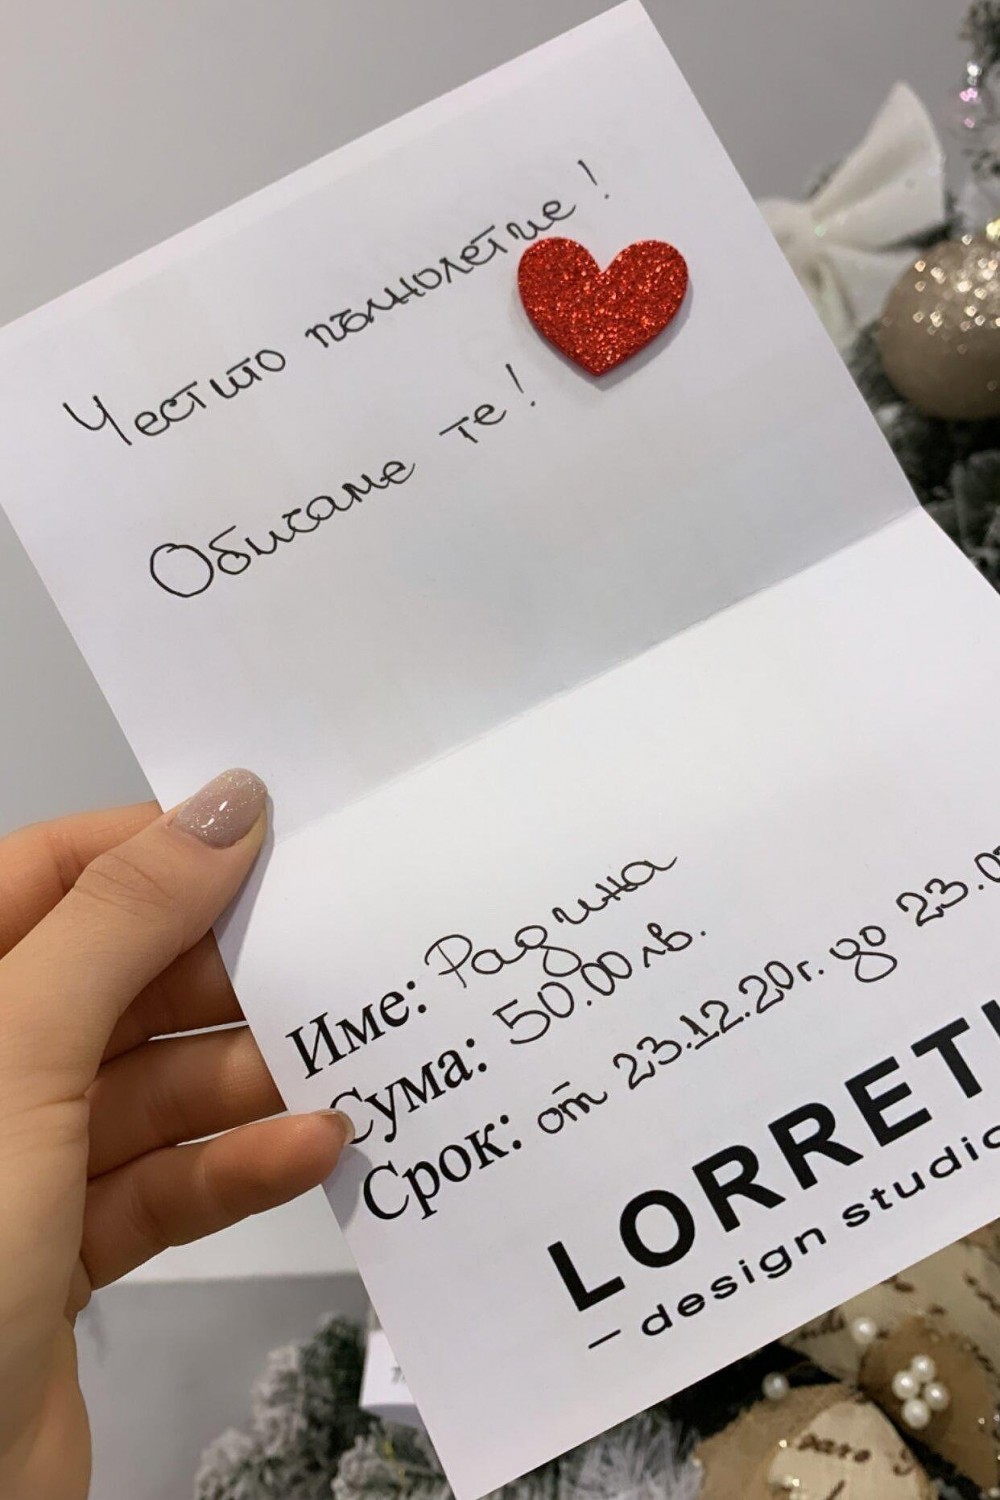 Честито пълнолетие!
Обичаме те!
Име: Радина
Сума: 50.00 лв.
Срок: от 23.12.20г. до 23.0
LORRET
design studio